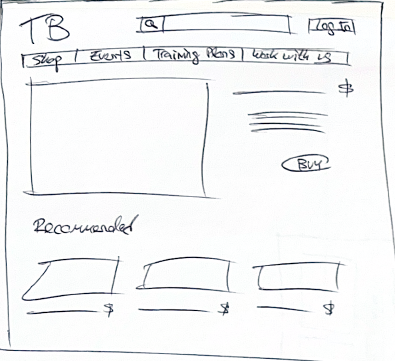 TB Log In
Shop Events Training Plans Work with us
$
BUY
Recommended
$ $ $